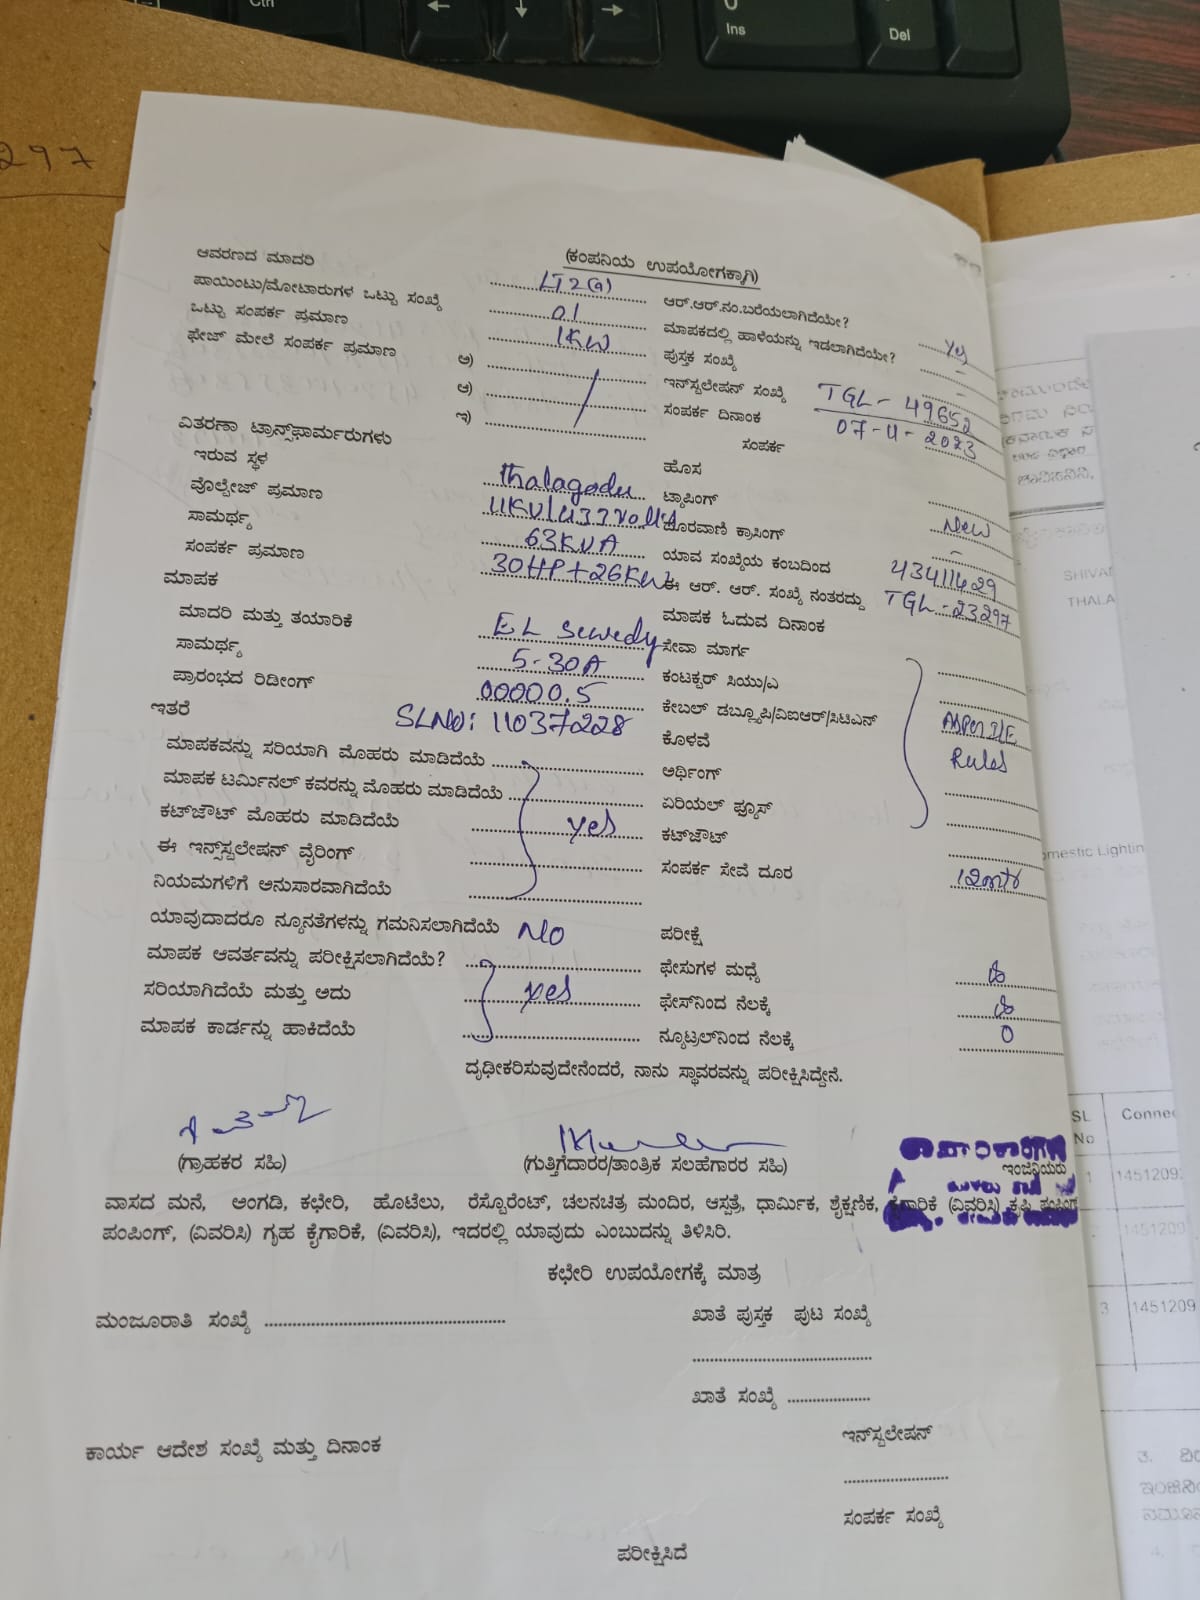 Ctrl
← ↓ →
0
Ins
Del
297
(ಕಂಪನಿಯ ಉಪಯೋಗಕ್ಕಾಗಿ)
ಆವರಣದ ಮಾದರಿ LT2(a)
ಆರ್.ಆರ್.ನಂ.ಬರೆಯಲಾಗಿದೆಯೇ? Yes
ಪಾಯಿಂಟು/ಮೋಟಾರುಗಳ ಒಟ್ಟು ಸಂಖ್ಯೆ 01
ಮಾಪಕದಲ್ಲಿ ಹಾಳೆಯನ್ನು ಇಡಲಾಗಿದೆಯೇ? –
ಒಟ್ಟು ಸಂಪರ್ಕ ಪ್ರಮಾಣ 1KW
ಪುಸ್ತಕ ಸಂಖ್ಯೆ –
ಫೇಜ್ ಮೇಲೆ ಸಂಪರ್ಕ ಪ್ರಮಾಣ ಅ)
ಇನ್‌ಸ್ಟಲೇಷನ್ ಸಂಖ್ಯೆ TGL - 49652
ಆ)
ಸಂಪರ್ಕ ದಿನಾಂಕ 07-11-2023
ಇ)
ಸಂಪರ್ಕ
ವಿತರಣಾ ಟ್ರಾನ್ಸ್‌ಫಾರ್ಮರುಗಳು
ಹೊಸ
ಇರುವ ಸ್ಥಳ thalagodu
ಟ್ಯಾಪಿಂಗ್ New
ವೊಲ್ಟೇಜ್ ಪ್ರಮಾಣ 11KV/433volts
ಮೆರವಾಣಿ ಕ್ರಾಸಿಂಗ್ –
ಸಾಮರ್ಥ್ಯ 63KVA
ಯಾವ ಸಂಖ್ಯೆಯ ಕಂಬದಿಂದ 43411429
ಸಂಪರ್ಕ ಪ್ರಮಾಣ 30HP+26KW
ಈ ಆರ್. ಆರ್. ಸಂಖ್ಯೆ ನಂತರದ್ದು TGL-23297
ಮಾಪಕ
ಮಾಪಕ ಓದುವ ದಿನಾಂಕ
ಮಾದರಿ ಮತ್ತು ತಯಾರಿಕೆ EL sewedy
ಸೇವಾ ಮಾರ್ಗ
ಸಾಮರ್ಥ್ಯ 5-30A
ಕಂಟಕ್ಟರ್ ಸಿಯು/ಎ
ಪ್ರಾರಂಭದ ರಿಡೀಂಗ್ 00000.5
ಕೇಬಲ್ ಡಬ್ಲ್ಯೂಪಿ/ವಿಐಆರ್/ಸಿಟಿಎನ್ ASPer IE
ಇತರೆ SLNO: 11037228
ಕೊಳವೆ Rules
ಮಾಪಕವನ್ನು ಸರಿಯಾಗಿ ಮೊಹರು ಮಾಡಿದೆಯೆ
ಅರ್ಥಿಂಗ್
ಮಾಪಕ ಟರ್ಮಿನಲ್ ಕವರನ್ನು ಮೊಹರು ಮಾಡಿದೆಯೆ
ಏರಿಯಲ್ ಫ್ಯೂಸ್
ಕಟ್‌ಔಟ್ ಮೊಹರು ಮಾಡಿದೆಯೆ yes
ಕಟ್‌ಔಟ್
ಈ ಇನ್ಸ್‌ಸ್ಟಲೇಷನ್ ವೈರಿಂಗ್
ಸಂಪರ್ಕ ಸೇವೆ ದೂರ 12mtr
ನಿಯಮಗಳಿಗೆ ಅನುಸಾರವಾಗಿದೆಯೆ
ಯಾವುದಾದರೂ ನ್ಯೂನತೆಗಳನ್ನು ಗಮನಿಸಲಾಗಿದೆಯೆ NO
ಪರೀಕ್ಷೆ
ಮಾಪಕ ಆವರ್ತವನ್ನು ಪರೀಕ್ಷಿಸಲಾಗಿದೆಯೆ?
ಫೇಸುಗಳ ಮಧ್ಯೆ
ಸರಿಯಾಗಿದೆಯೆ ಮತ್ತು ಅದು yes
ಫೇಸ್‌ನಿಂದ ನೆಲಕ್ಕೆ
ಮಾಪಕ ಕಾರ್ಡನ್ನು ಹಾಕಿದೆಯೆ
ನ್ಯೂಟ್ರಲ್‌ನಿಂದ ನೆಲಕ್ಕೆ 0
ದೃಢೀಕರಿಸುವುದೇನೆಂದರೆ, ನಾನು ಸ್ಥಾವರವನ್ನು ಪರೀಕ್ಷಿಸಿದ್ದೇನೆ.
(ಗ್ರಾಹಕರ ಸಹಿ)
(ಗುತ್ತಿಗೆದಾರರ/ತಾಂತ್ರಿಕ ಸಲಹೆಗಾರರ ಸಹಿ)
ಇಂಜಿನಿಯರು
ವಾಸದ ಮನೆ, ಅಂಗಡಿ, ಕಛೇರಿ, ಹೊಟೆಲು, ರೆಸ್ಟೊರೆಂಟ್, ಚಲನಚಿತ್ರ ಮಂದಿರ, ಆಸ್ಪತ್ರೆ, ಧಾರ್ಮಿಕ, ಶೈಕ್ಷಣಿಕ, ಕೈಗಾರಿಕೆ (ವಿವರಿಸಿ) ಕೃಷಿ ಪಂಪಿಂಗ್
ಪಂಪಿಂಗ್, (ವಿವರಿಸಿ) ಗೃಹ ಕೈಗಾರಿಕೆ, (ವಿವರಿಸಿ), ಇದರಲ್ಲಿ ಯಾವುದು ಎಂಬುದನ್ನು ತಿಳಿಸಿರಿ.
ಕಛೇರಿ ಉಪಯೋಗಕ್ಕೆ ಮಾತ್ರ
ಮಂಜೂರಾತಿ ಸಂಖ್ಯೆ
ಖಾತೆ ಪುಸ್ತಕ ಪುಟ ಸಂಖ್ಯೆ
ಖಾತೆ ಸಂಖ್ಯೆ
ಕಾರ್ಯ ಆದೇಶ ಸಂಖ್ಯೆ ಮತ್ತು ದಿನಾಂಕ
ಇನ್‌ಸ್ಟಲೇಷನ್
ಸಂಪರ್ಕ ಸಂಖ್ಯೆ
ಪರೀಕ್ಷಿಸಿದೆ
SHIVA
THALA
omestic Lightin
SL No
Connec
1 1451209
1451209
3 1451209